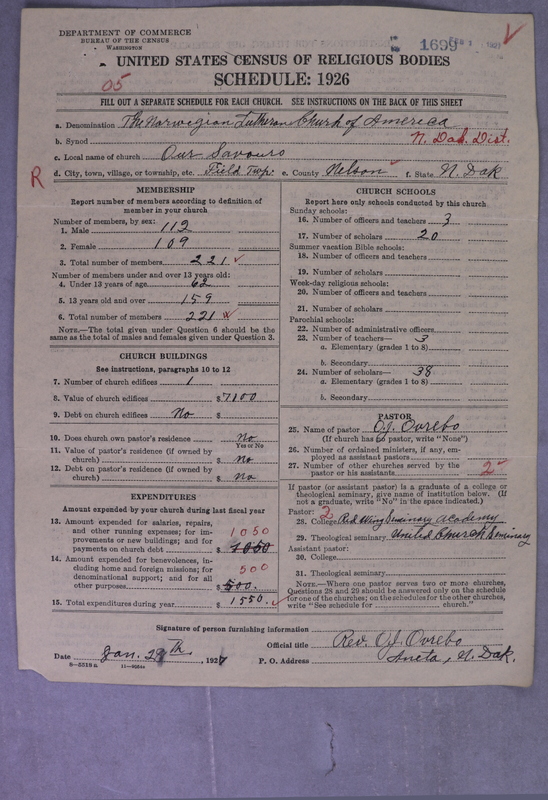 DEPARTMENT OF COMMERCE
BUREAU OF THE CENSUS
WASHINGTON
1699 FEB 1 1927
UNITED STATES CENSUS OF RELIGIOUS BODIES
SCHEDULE: 1926
05
FILL OUT A SEPARATE SCHEDULE FOR EACH CHURCH. SEE INSTRUCTIONS ON THE BACK OF THIS SHEET
a. Denomination The Norwegian Lutheran Church of America
b. Synod N. Dak. Dist.
c. Local name of church Our Savours
R
d. City, town, village, or township, etc. Field Twp. e. County Nelson f. State N. Dak
MEMBERSHIP
Report number of members according to definition of member in your church
Number of members, by sex:
1. Male 112
2. Female 109
3. Total number of members 221
Number of members under and over 13 years old:
4. Under 13 years of age 62
5. 13 years old and over 159
6. Total number of members 221
NOTE.—The total given under Question 6 should be the same as the total of males and females given under Question 3.
CHURCH BUILDINGS
See instructions, paragraphs 10 to 12
7. Number of church edifices 1
8. Value of church edifices $7100
9. Debt on church edifices No $
10. Does church own pastor's residence No
Yes or No
11. Value of pastor's residence (if owned by church) $ No
12. Debt on pastor's residence (if owned by church) $ No
EXPENDITURES
Amount expended by your church during last fiscal year
13. Amount expended for salaries, repairs, and other running expenses; for improvements or new buildings; and for payments on church debt 1050 $ 1050
14. Amount expended for benevolences, including home and foreign missions; for denominational support; and for all other purposes 500 $ 500.
15. Total expenditures during year $ 1550.
CHURCH SCHOOLS
Report here only schools conducted by this church.
Sunday schools:
16. Number of officers and teachers 3
17. Number of scholars 20
Summer vacation Bible schools:
18. Number of officers and teachers
19. Number of scholars
Week-day religious schools:
20. Number of officers and teachers
21. Number of scholars
Parochial schools:
22. Number of administrative officers
23. Number of teachers— 3
a. Elementary (grades 1 to 8)
b. Secondary
24. Number of scholars— 38
a. Elementary (grades 1 to 8)
b. Secondary
PASTOR
25. Name of pastor O.J. Ovrebo
(If church has no pastor, write "None")
26. Number of ordained ministers, if any, employed as assistant pastors
27. Number of other churches served by the pastor or his assistant 2
If pastor (or assistant pastor) is a graduate of a college or theological seminary, give name of institution below. (If not a graduate, write "No" in the space indicated.)
Pastor: 2
28. College Red Wing Seminary Academy
29. Theological seminary United Church Seminary
Assistant pastor:
30. College
31. Theological seminary
NOTE.—Where one pastor serves two or more churches, Questions 28 and 29 should be answered only on the schedule for one of the churches; on the schedules for the other churches, write "See schedule for church."
Signature of person furnishing information
Official title Rev. O.J. Ovrebo
Date Jan. 29th, 1927 P. O. Address Aneta, N. Dak.